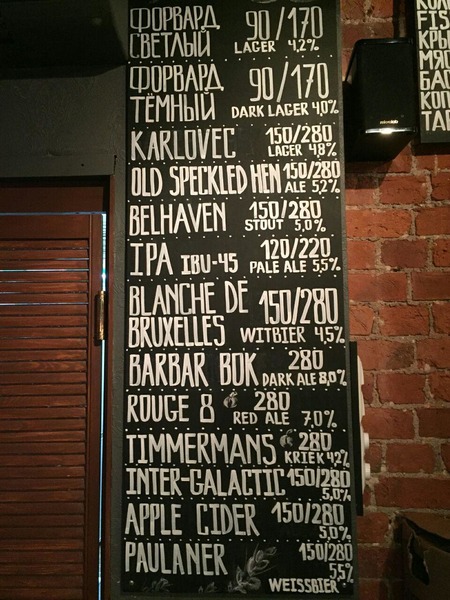 ФОРВАРД 90/170
СВЕТЛЫЙ LAGER 4,2%
ФОРВАРД 90/170
ТЁМНЫЙ DARK LAGER 4,0%
KARLOVEC 150/280
LAGER 4,8%
OLD SPECKLED HEN 150/280
ALE 5,2%
BELHAVEN 150/280
STOUT 5,0%
IPA IBU-45 120/220
PALE ALE 5,5%
BLANCHE DE 150/280
BRUXELLES WITBIER 4,5%
BARBAR BOK 280
DARK ALE 8,0%
ROUGE 8 280
RED ALE 7,0%
TIMMERMANS 280
KRIEK 4,2%
INTER-GALACTIC 150/280
5,0%
APPLE CIDER 150/280
5,0%
PAULANER 150/280
5,5%
WEISSBIER
microlab
FIS
КРЫ
МЯС
БАС
КОП
ТАР